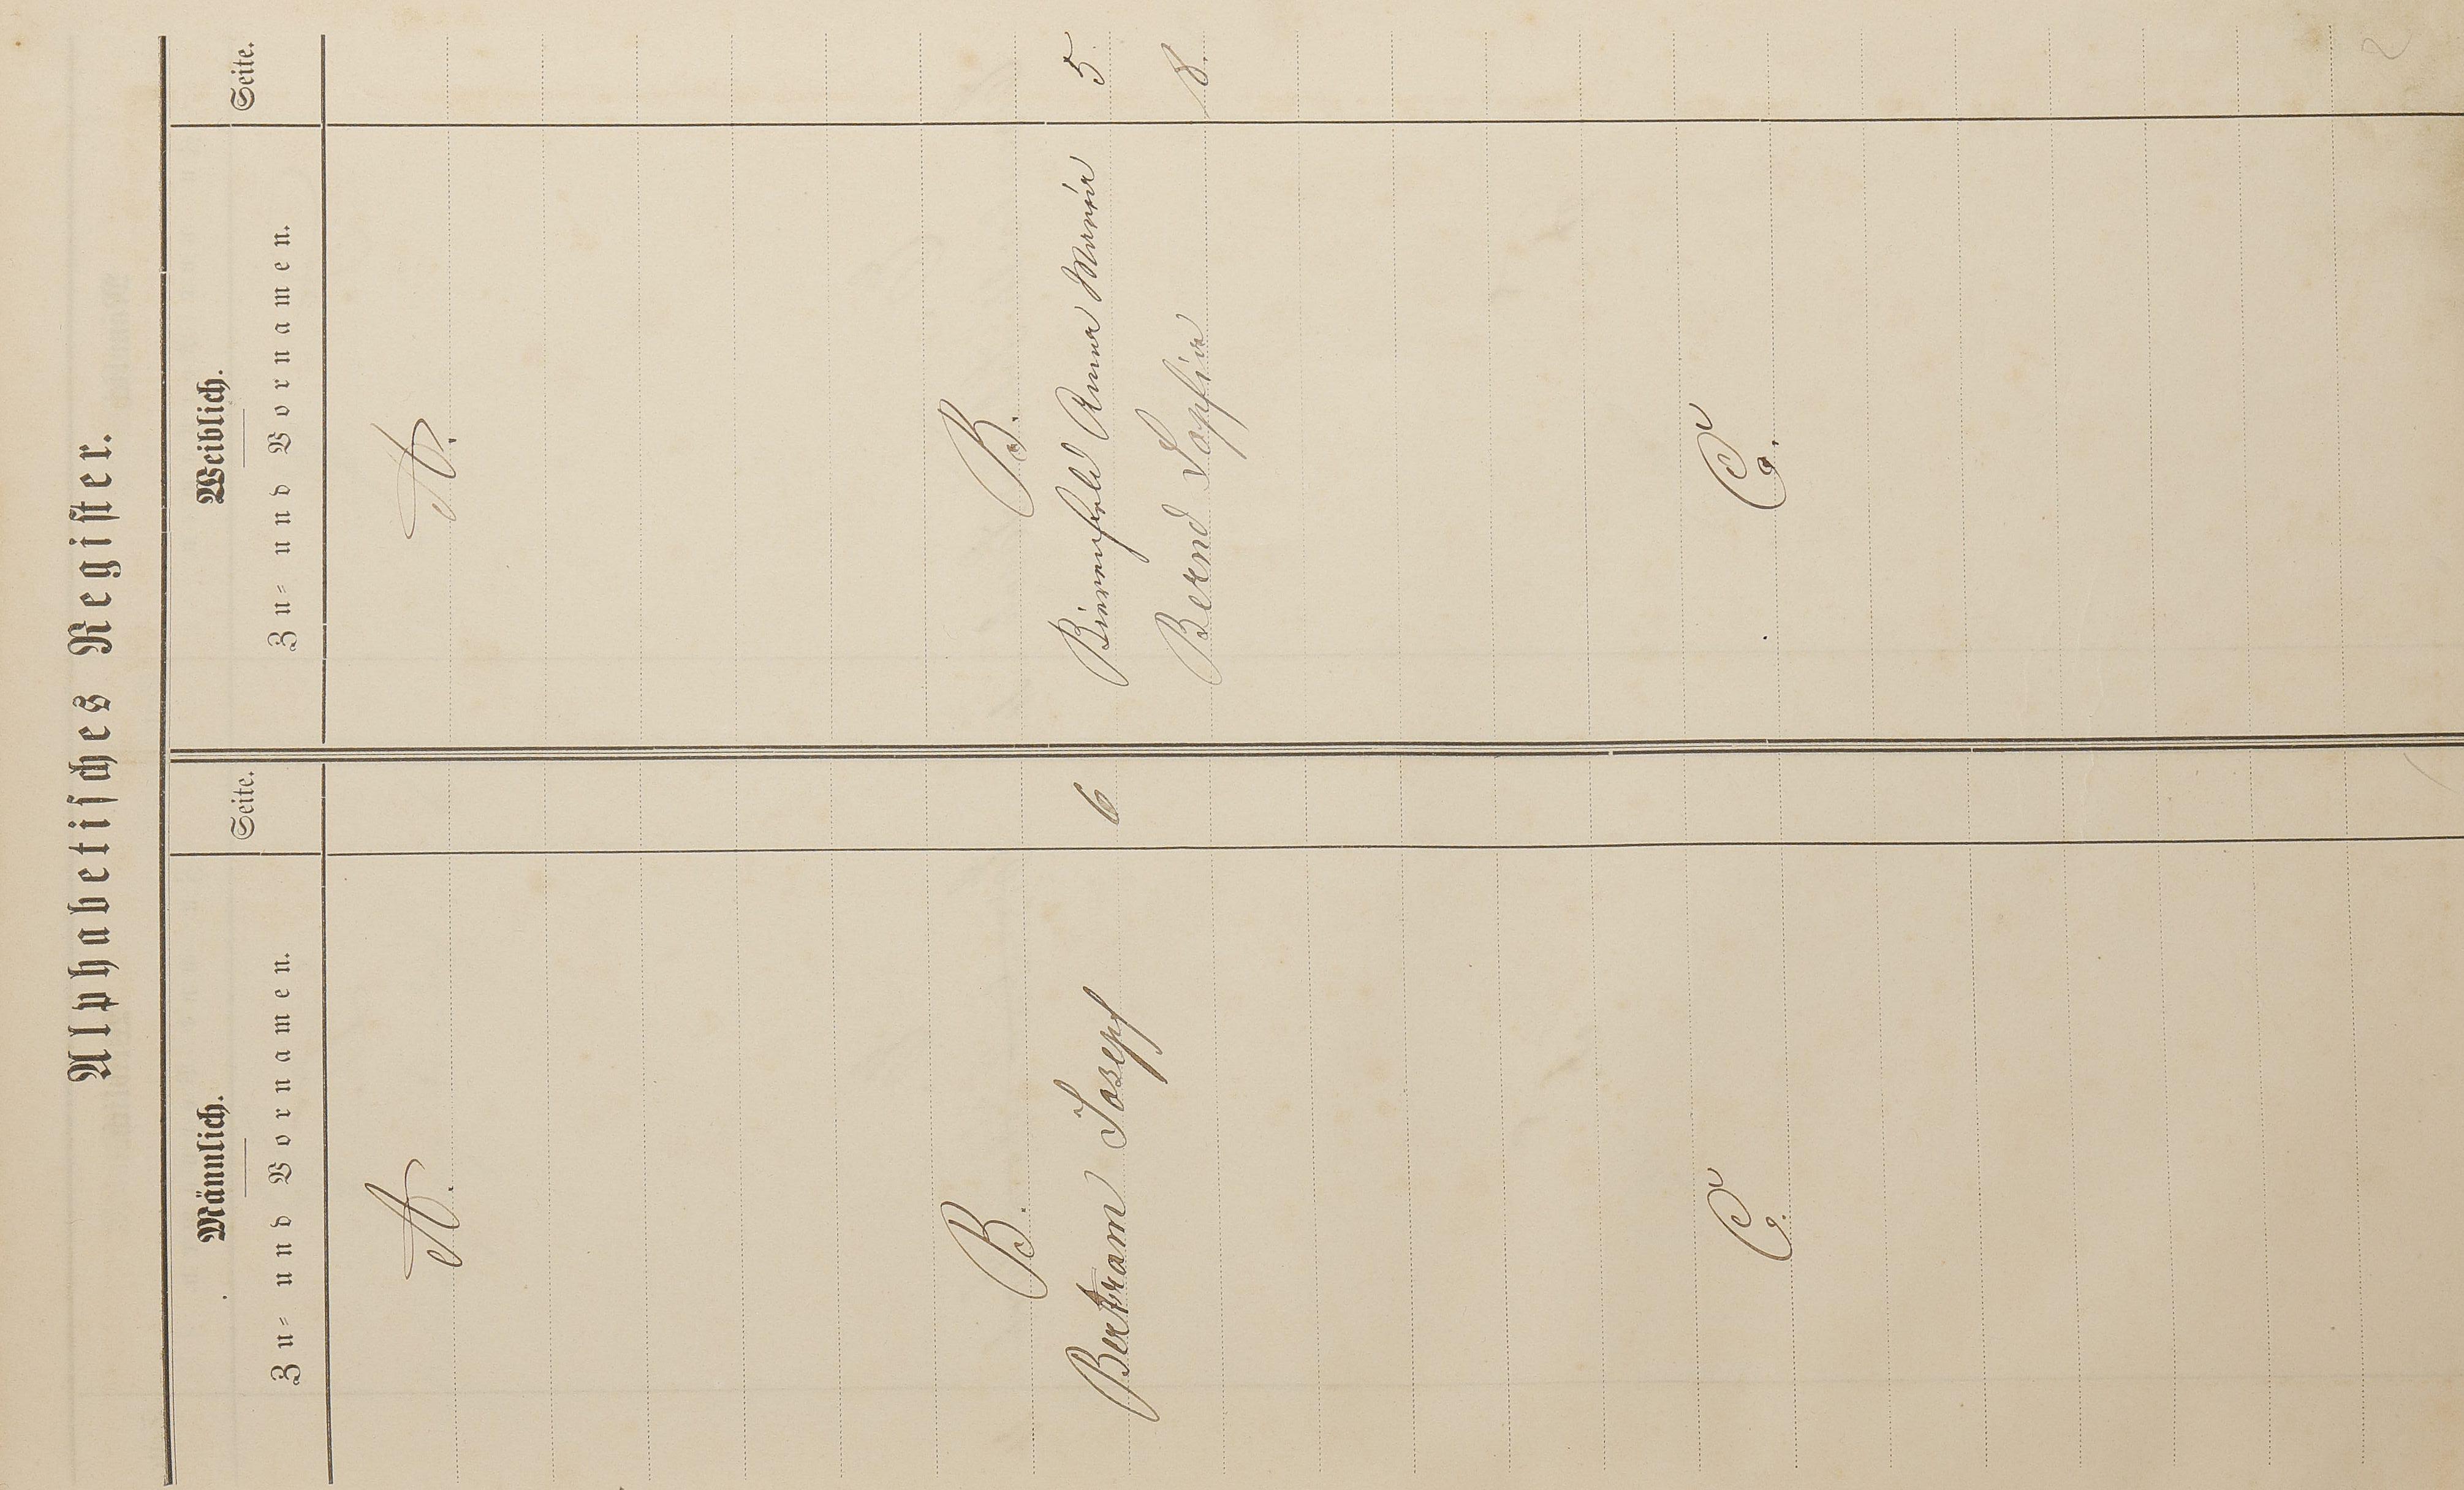 Alphabetisches Register.
Männlich. Seite. Weiblich. Seite.
Zu- und Vornamen. Zu- und Vornamen.
A. A.
B. B.
Bertram Josepf 6 Bienenfeld Anna Maria 5.
Bernd Sopfia 8.
C. C.
2